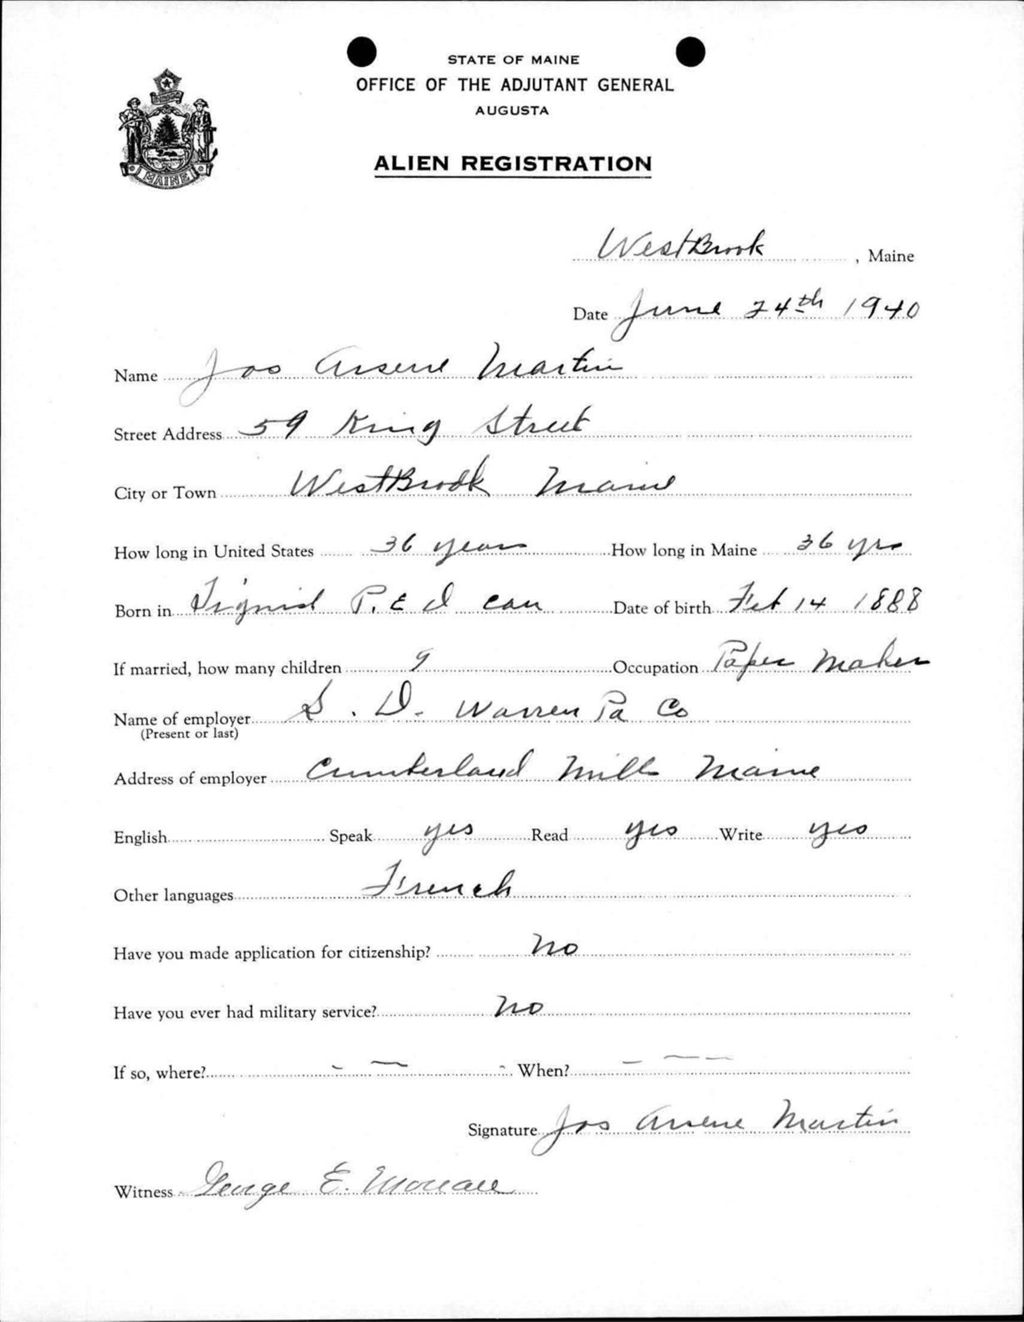 STATE OF MAINE
OFFICE OF THE ADJUTANT GENERAL
AUGUSTA
ALIEN REGISTRATION
MAINE
WestBrook, Maine
Date June 24th 1940
Name Jos Arsene Martin
Street Address 59 King Street
City or Town WestBrook Maine
How long in United States 36 years How long in Maine 36 yrs
Born in Tignish P. E I Can Date of birth Feb 14 1888
If married, how many children 9 Occupation Paper Maker
Name of employer S. D. Warren Pa Co
(Present or last)
Address of employer Cumberland Mills Maine
English Speak yes Read yes Write yes
Other languages French
Have you made application for citizenship? No
Have you ever had military service? No
If so, where? - - - When? - ---
Signature Jos Arsene Martin
Witness George E.